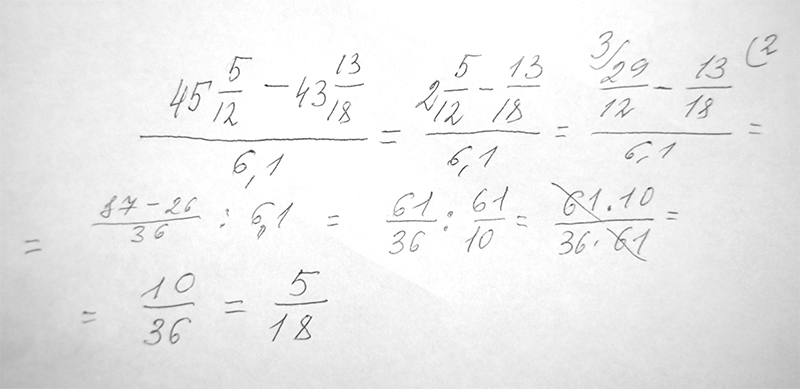 (45 5/12 − 43 13/18) / 6,1 = (2 5/12 − 13/18) / 6,1 = (3/ 29/12 − 13/18 (2) / 6,1 =
= (87 − 26)/36 : 6,1 = 61/36 : 61/10 = (61 · 10)/(36 · 61) =
= 10/36 = 5/18